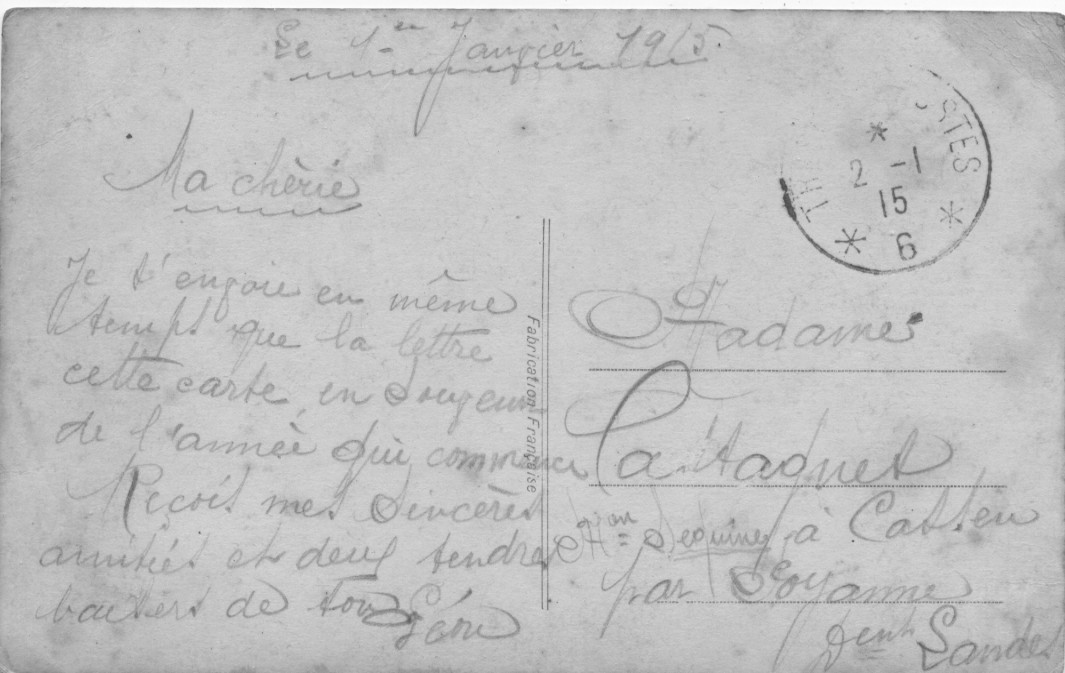 Le 1er Janvier 1915.
Ma chèrie
Je t'envoie en même
temps que la lettre
cette carte en souvenir
de l'année qui commence
Reçois mes sincères
amitiés et deux tendres
baisers de ton Léon
Fabrication Française
STES
2 -1
15
6
Madame
Castagnet
Mon à
par Poyanne
Dent Landes